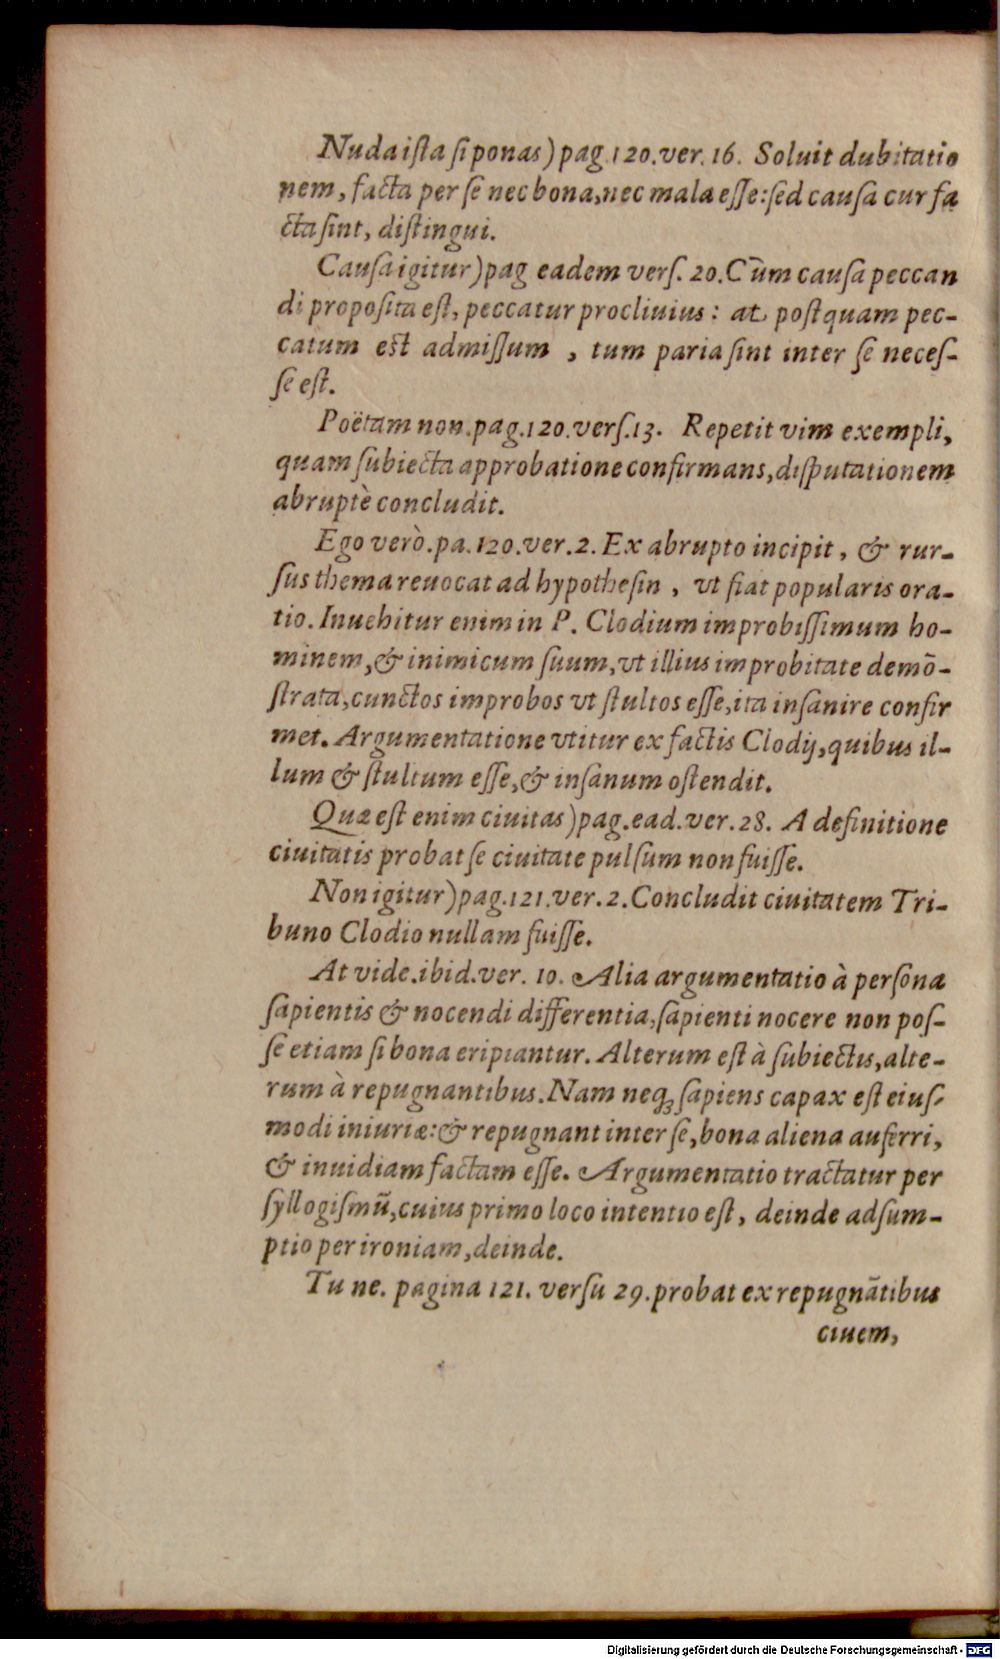 Nuda ista si ponas) pag. 120. ver. 16. Soluit dubitatio
nem, facta per se nec bona, nec mala esse: sed causa cur fa
cta sint, distingui.
Causa igitur) pag eadem vers. 20. Cùm causa peccan
di proposita est, peccatur procliuius: at postquam pec-
catum est admissum, tum paria sint inter se neces-
se est.
Poëtam non. pag. 120. vers. 13. Repetit vim exempli,
quam subiecta approbatione confirmans, disputationem
abruptè concludit.
Ego verò. pa. 120. ver. 2. Ex abrupto incipit, & rur-
sus thema reuocat ad hypothesin, vt fiat popularis ora-
tio. Inuehitur enim in P. Clodium improbissimum ho-
minem, & inimicum suum, vt illius improbitate demõ-
strata, cunctos improbos vt stultos esse, ita insanire confir
met. Argumentatione vtitur ex factis Clodij, quibus il-
lum & stultum esse, & insanum ostendit.
Quæ est enim ciuitas) pag. ead. ver. 28. A definitione
ciuitatis probat se ciuitate pulsum non fuisse.
Non igitur) pag. 121. ver. 2. Concludit ciuitatem Tri-
buno Clodio nullam fuisse.
At vide. ibid. ver. 10. Alia argumentatio à persona
sapientis & nocendi differentia, sapienti nocere non pos-
se etiam si bona eripiantur. Alterum est à subiectis, alte-
rum à repugnantibus. Nam neq; sapiens capax est eius-
modi iniuriæ: & repugnant inter se, bona aliena auferri,
& inuidiam factam esse. Argumentatio tractatur per
syllogismũ, cuius primo loco intentio est, deinde adsum-
ptio per ironiam, deinde.
Tu ne. pagina 121. versu 29. probat ex repugnãtibus
ciuem,
Digitalisierung gefördert durch die Deutsche Forschungsgemeinschaft - DFG